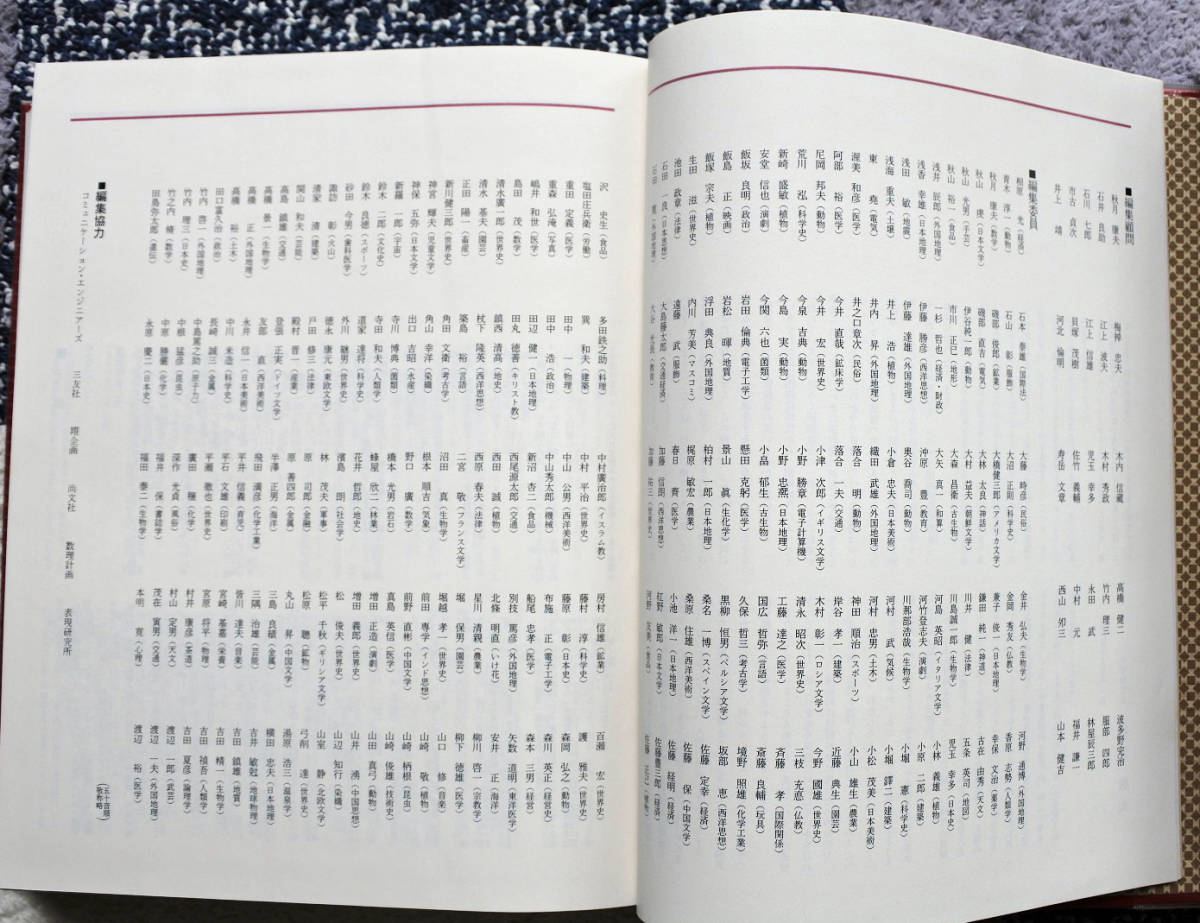 ■編集顧問
秋月 康夫 梅棹 忠夫 木内 信蔵 高橋 健二 波多野完治
石井 良助 江上 波夫 木村 秀政 竹内 理三 服部 四郎
石川 七郎 江上 信雄 児玉 幸多 永田 武 林屋辰三郎
市古 貞次 貝塚 茂樹 佐竹 義輔 中村 元 福井 謙一
井上 靖 河北 倫明 寿岳 文章 西山 夘三 山本 健吉
■編集委員
相原 光(経済) 石本 泰雄(国際法) 大藤 時彦(民俗) 金井 弘夫(生物学) 河野 通博(外国地理)
青木 淳一(動物) 石山 彰(服飾) 大沼 正則(科学史) 金岡 秀友(仏教) 香原 志勢(人類学)
秋月 康夫(数学) 磯部 俊郎(鉱業) 大橋健三郎(アメリカ文学) 兼子 俊一(日本地理) 幸保 文治(薬学)
秋山 虔(日本文学) 磯部 直吉(電気) 大林 太良(神話) 鎌田 純一(神道) 古在 由秀(天文)
秋山 光男(手芸) 伊谷純一郎(動物) 大村 益夫(朝鮮文学) 川井 健(法律) 五条 英司(地図)
秋山 裕一(食品) 市川 正巳(地形) 大森 昌衛(古生物) 川島誠一郎(生物学) 児玉 幸多(日本史)
浅井 辰郎(外国地理) 一杉 哲也(経済・財政) 大矢 真一(和算) 河島 英昭(イタリア文学) 小林 義雄(植物)
浅香 幸雄(日本地理) 伊藤 勝彦(西洋思想) 沖原 豊(教育) 河竹登志夫(演劇) 小原 二郎(建築)
浅田 敏(地震) 伊藤 達雄(外国地理) 奥谷 喬司(動物) 川那部浩哉(生物学) 小堀 憲(科学史)
浅海 重夫(土壌) 井上 浩(植物) 小倉 忠夫(日本美術) 河村 武(気候) 小堀 鐸二(建築)
東 堯(電気) 井内 昇(外国地理) 織田 武雄(外国地理) 河村 忠男(土木) 小松 茂美(日本美術)
渥美 和彦(医学) 井之口章次(民俗) 落合 明(動物) 神田 順治(スポーツ) 小山 雄生(農業)
阿部 裕(医学) 今井 直哉(鉱床学) 落合 一夫(交通) 岸谷 孝一(建築) 近藤 典生(園芸)
尼岡 邦夫(動物) 今井 宏(世界史) 小津 次郎(イギリス文学) 木村 彰一(ロシア文学) 今野 國雄(世界史)
荒川 泓(科学史) 今泉 吉典(動物) 小野 勝章(電子計算機) 清永 昭次(世界史) 三枝 充悳(仏教)
新崎 盛敏(植物) 今島 実(動物) 小野 忠凞(日本地理) 工藤 達之(医学) 斉藤 孝(国際関係)
安堂 信也(演劇) 今関 六也(菌類) 小畠 郁生(古生物) 国広 哲弥(言語) 斎藤 良輔(玩具)
飯坂 良明(政治) 岩田 倫典(電子工学) 懸田 克躬(医学) 久保 哲三(考古学) 境野 照雄(化学工業)
飯島 正(映画) 岩松 暉(地質) 景山 眞(生化学) 黒柳 恒男(ペルシア文学) 坂部 恵(西洋思想)
飯塚 宗夫(植物) 浮田 典良(外国地理) 柏村 一郎(日本地理) 桑名 一博(スペイン文学) 佐藤 定幸(経済)
生田 滋(世界史) 内川 芳美(マスコミ) 梶原 敏宏(農業) 桑原 住雄(西洋美術) 佐藤 保(中国文学)
池田 政章(法律) 遠藤 武(服飾) 春日 齊(医学) 小池 洋一(日本地理) 佐藤 経明(経済)
石田 一良(日本思想) 大島藤太郎(交通経済) 加藤 信朗(西洋思想) 紅野 敏郎(日本文学) 佐藤豊三郎(経済)
石田 寛(外国地理) 大谷 光長(教育) 加藤 祐三(世界史) 河野 友美(食品) 佐藤 正己(植物)
沢 史生(食品) 多田鉄之助(料理) 中村廣治郎(イスラム教) 房村 信雄(鉱業) 百瀬 宏(世界史)
塩田庄兵衛(労働) 巽 和夫(建築) 中村 平治(世界史) 藤村 淳(科学史) 護 雅夫(世界史)
重田 定義(医学) 田中 一(物理) 中山 公男(西洋美術) 藤原 彰(日本史) 森岡 弘之(動物)
重森 弘淹(写真) 田中 浩(政治) 中山秀太郎(機械) 布施 正(電子工学) 森川 英正(経営史)
嶋井 和世(医学) 田辺 健一(日本地理) 新沼 杏二(食品) 船尾 忠孝(医学) 森本 三男(経営)
島田 茂(数学) 田丸 徳善(キリスト教) 西尾源太郎(交通) 別技 篤彦(外国地理) 矢数 道明(東洋医学)
清水廣一郎(世界史) 鎮西 清高(地史) 西原 春夫(法律) 北條 明直(いけ花) 安井 正(海洋)
清水 基夫(園芸) 杖下 隆英(西洋思想) 二宮 敬(フランス文学) 星川 清親(農業) 柳川 啓一(宗教学)
正田 陽一(畜産) 築島 裕(言語) 沼田 真(生物学) 堀 保男(園芸) 柳下 徳雄(医学)
新川健三郎(世界史) 角田 文衛(考古学) 根本 順吉(気象) 堀越 孝一(世界史) 山口 修(音楽)
神宮 輝夫(児童文学) 角山 幸洋(染織) 野口 廣(数学) 前田 専学(インド思想) 山崎 敬(植物)
神保 五弥(日本文学) 出口 吉昭(水産) 橋本 光男(岩石) 前野 直彬(中国文学) 山崎 柄根(昆虫)
新羅 一郎(宇宙) 寺川 博典(菌類) 蜂屋 欣二(林業) 真島 英信(医学) 山崎 俊雄(技術史)
鈴木 二郎(文化史) 寺田 和夫(人類学) 花井 哲郎(地史) 増田 正造(演劇) 山田 真弓(動物)
鈴木 良徳(スポーツ) 道家 達将(科学史) 濱島 朗(社会学) 増田 義郎(世界史) (中国思想)
砂田 今男(歯科医学) 外川 継男(世界史) 林 茂(軍事) 松 俊夫(世界史) 山辺 知行(染織)
諏訪 彰(火山) 徳永 康元(東欧文学) 原 司郎(金融) 松平 千秋(ギリシア文学) 山室 静(北欧文学)
清家 清(建築) 戸田 修三(法律) 原 善四郎(金属) 松原 聰(鉱物) 弓削 達(世界史)
関山 和夫(芸能) 殿村 晋一(産業) 半澤 正男(海洋) 丸山 昇(中国文学) 湯原 浩三(温泉学)
高島 鎮雄(交通) 登張 正実(ドイツ文学) 飛田 満彦(化学工業) 三島 良績(金属) 横田 忠夫(日本地理)
高橋 景一(生物学) 友部 直(西洋美術) 平井 信義(育児) 三隅 治雄(芸能) 吉井 敏尅(地球物理)
高橋 正(外国地理) 永井 信一(日本美術) 平石 文雄(印刷) 皆川 達夫(音楽) 吉田 鎮雄(地質)
高橋 裕(土木) 中川 米造(科学史) 平瀬 徹也(世界史) 宮崎 基嘉(栄養) 吉田 精一(生物学)
田口富久治(政治) 長崎 誠三(金属) 廣田 穰(化学) 宮原 将平(物理) 吉田 禎吾(人類学)
竹内 啓一(外国地理) 中島篤之助(原子力) 深作 光貞(風俗) 村井 康彦(茶道) 吉田 夏彦(論理学)
竹内 理三(日本史) 中根 猛彦(昆虫) 福井 保(書誌学) 村山 定男(天文) 渡辺 一郎(武芸)
竹之内 脩(数学) 中原 勝儼(化学) 福田 泰二(生物学) 茂在 寅男(交通) 渡辺 一夫(外国地理)
田島弥太郎(遺伝) 永原 慶二(日本史) 本明 寛(心理) 渡辺 裕(医学)
(五十音順)
(敬称略)
■編集協力
コミュニケーション・エンジニアーズ 三友社 躍企画 尚文社 数理計画 表現研究所